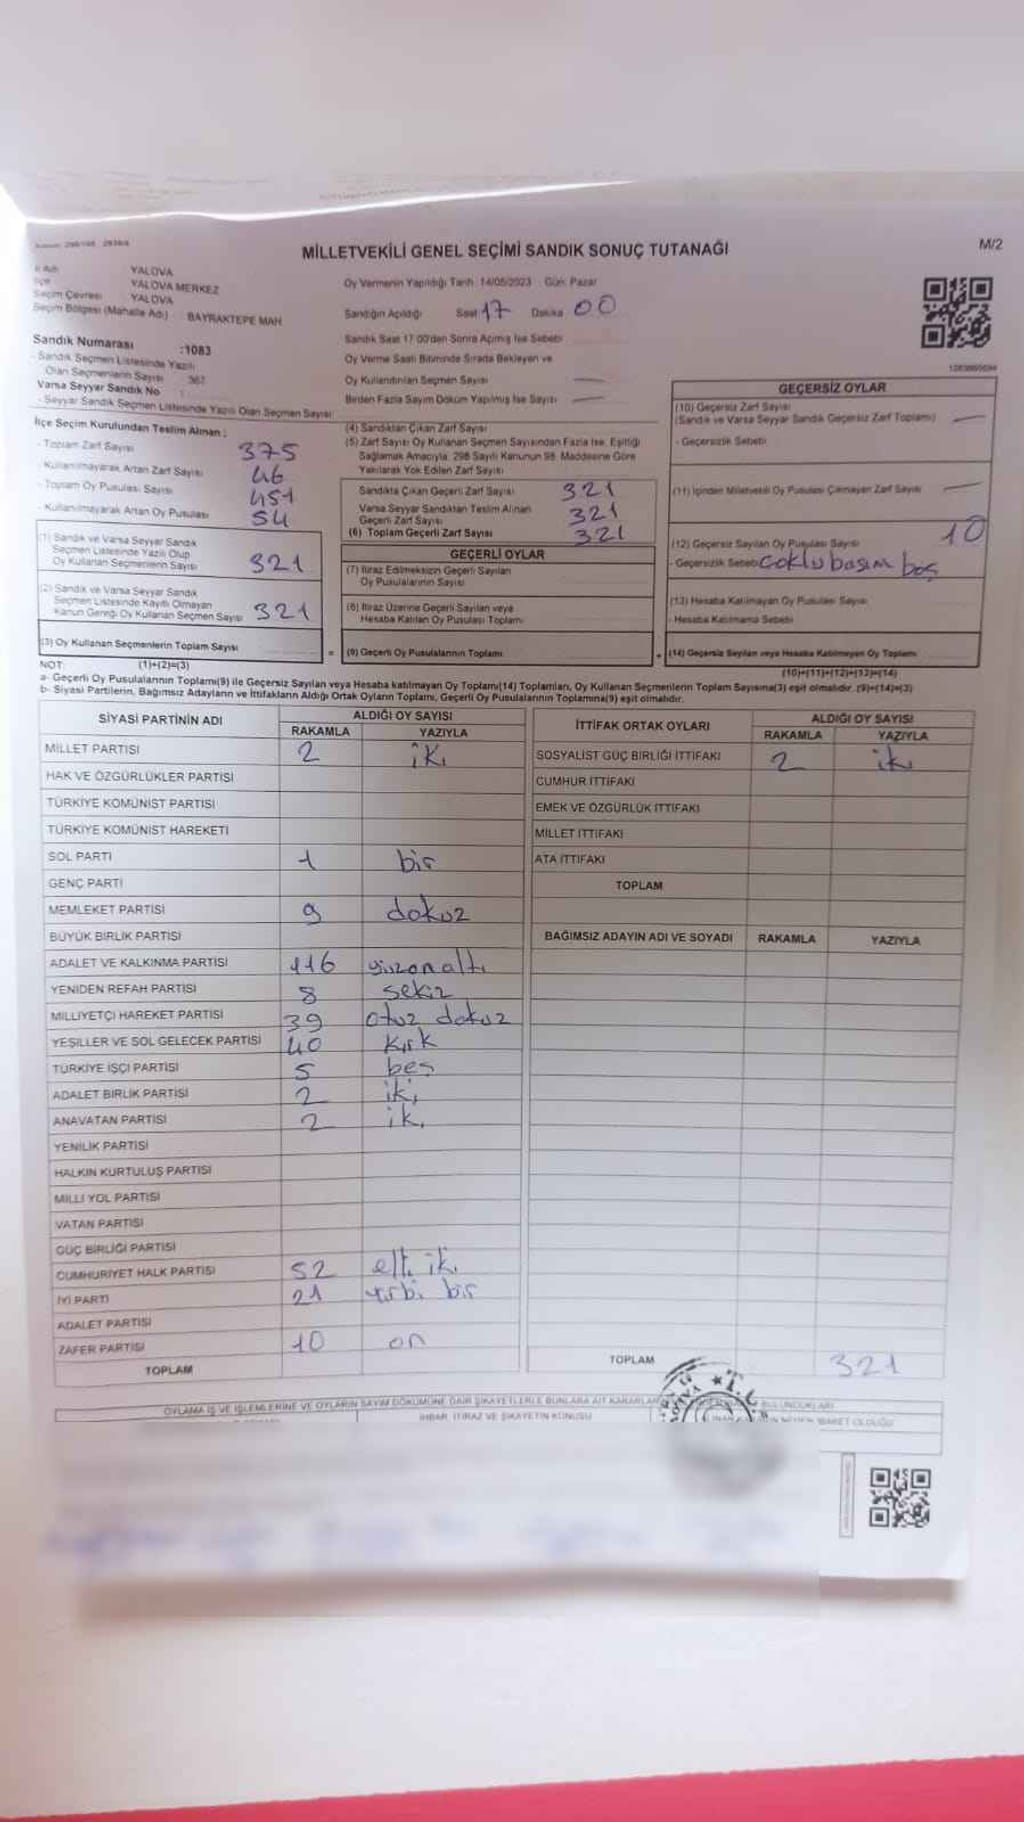 MİLLETVEKİLİ GENEL SEÇİMİ SANDIK SONUÇ TUTANAĞI
M/2
YALOVA
YALOVA MERKEZ
Seçim Çevresi YALOVA
Seçim Bölgesi (Mahalle Adı) : BAYRAKTEPE MAH
Oy Vermenin Yapıldığı Tarih: 14/05/2023 Gün: Pazar
Sandığın Açıldığı Saat 17 Dakika 00
Sandık Saat 17:00'den Sonra Açımış İse Sebebi
Oy Verme Saati Bitiminde Sırada Bekleyen ve
Oy Kullandırılan Seçmen Sayısı —
Birden Fazla Sayım Döküm Yapılmış İse Sayısı —
Sandık Numarası :1083
- Sandık Seçmen Listesinde Yazılı
Olan Seçmenlerin Sayısı 367
Varsa Seyyar Sandık No
- Seyyar Sandık Seçmen Listesinde Yazılı Olan Seçmen Sayısı
İlçe Seçim Kurulundan Teslim Alınan ;
- Toplam Zarf Sayısı 375
- Kullanılmayarak Artan Zarf Sayısı 46
- Toplam Oy Pusulası Sayısı 451
- Kullanılmayarak Artan Oy Pusulası 54
(1) Sandık ve Varsa Seyyar Sandık
Seçmen Listesinde Yazılı Olup
Oy Kullanan Seçmenlerin Sayısı 321
(2) Sandık ve Varsa Seyyar Sandık
Seçmen Listesinde Kayıtlı Olmayan
Kanun Gereği Oy Kullanan Seçmen Sayısı 321
(3) Oy Kullanan Seçmenlerin Toplam Sayısı
(4) Sandıktan Çıkan Zarf Sayısı
(5) Zarf Sayısı Oy Kullanan Seçmen Sayısından Fazla İse, Eşitliği
Sağlamak Amacıyla, 298 Sayılı Kanunun 98. Maddesine Göre
Yakılarak Yok Edilen Zarf Sayısı
Sandıkta Çıkan Geçerli Zarf Sayısı 321
Varsa Seyyar Sandıktan Teslim Alınan
Geçerli Zarf Sayısı 321
(6) Toplam Geçerli Zarf Sayısı 321
GEÇERLİ OYLAR
(7) İtiraz Edilmeksizin Geçerli Sayılan
Oy Pusulalarının Sayısı
(8) İtiraz Üzerine Geçerli Sayılan veya
Hesaba Katılan Oy Pusulası Toplamı
= (9) Geçerli Oy Pusulalarının Toplamı
GEÇERSİZ OYLAR
(10) Geçersiz Zarf Sayısı
(Sandık ve Varsa Seyyar Sandık Geçersiz Zarf Toplamı) —
- Geçersizlik Sebebi
(11) İçinden Milletvekili Oy Pusulası Çıkmayan Zarf Sayısı —
(12) Geçersiz Sayılan Oy Pusulası Sayısı 10
- Geçersizlik Sebebi çoklu basım boş
(13) Hesaba Katılmayan Oy Pusulası Sayısı
- Hesaba Katılmama Sebebi
+ (14) Geçersiz Sayılan veya Hesaba Katılmayan Oy Toplamı
NOT: (1)+(2)=(3)
(10)+(11)+(12)+(13)=(14)
a- Geçerli Oy Pusulalarının Toplamı(9) ile Geçersiz Sayılan veya Hesaba katılmayan Oy Toplamı(14) Toplamları, Oy Kullanan Seçmenlerin Toplam Sayısına(3) eşit olmalıdır. (9)+(14)=(3)
b- Siyasi Partilerin, Bağımsız Adayların ve İttifakların Aldığı Ortak Oyların Toplamı, Geçerli Oy Pusulalarının Toplamına(9) eşit olmalıdır.
SİYASİ PARTİNİN ADI ALDIĞI OY SAYISI
RAKAMLA YAZIYLA
MİLLET PARTİSİ 2 iki
HAK VE ÖZGÜRLÜKLER PARTİSİ
TÜRKİYE KOMÜNİST PARTİSİ
TÜRKİYE KOMÜNİST HAREKETİ
SOL PARTİ 1 bir
GENÇ PARTİ
MEMLEKET PARTİSİ 9 dokuz
BÜYÜK BİRLİK PARTİSİ
ADALET VE KALKINMA PARTİSİ 116 yüzonaltı
YENİDEN REFAH PARTİSİ 8 sekiz
MİLLİYETÇİ HAREKET PARTİSİ 39 otuz dokuz
YEŞİLLER VE SOL GELECEK PARTİSİ 40 Kırk
TÜRKİYE İŞÇİ PARTİSİ 5 beş
ADALET BİRLİK PARTİSİ 2 iki
ANAVATAN PARTİSİ 2 iki
YENİLİK PARTİSİ
HALKIN KURTULUŞ PARTİSİ
MİLLİ YOL PARTİSİ
VATAN PARTİSİ
GÜÇ BİRLİĞİ PARTİSİ
CUMHURİYET HALK PARTİSİ 52 elli iki
İYİ PARTİ 21 yirbi bir
ADALET PARTİSİ
ZAFER PARTİSİ 10 on
TOPLAM
İTTİFAK ORTAK OYLARI ALDIĞI OY SAYISI
RAKAMLA YAZIYLA
SOSYALİST GÜÇ BİRLİĞİ İTTİFAKI 2 iki
CUMHUR İTTİFAKI
EMEK VE ÖZGÜRLÜK İTTİFAKI
MİLLET İTTİFAKI
ATA İTTİFAKI
TOPLAM
BAĞIMSIZ ADAYIN ADI VE SOYADI RAKAMLA YAZIYLA
TOPLAM 321
OYLAMA İŞ VE İŞLEMLERİNE VE OYLARIN SAYIM DÖKÜMÜNE DAİR ŞİKAYETLERLE BUNLARA AİT KARARLAR
İHBAR, İTİRAZ VE ŞİKAYETİN KONUSU
T.C.